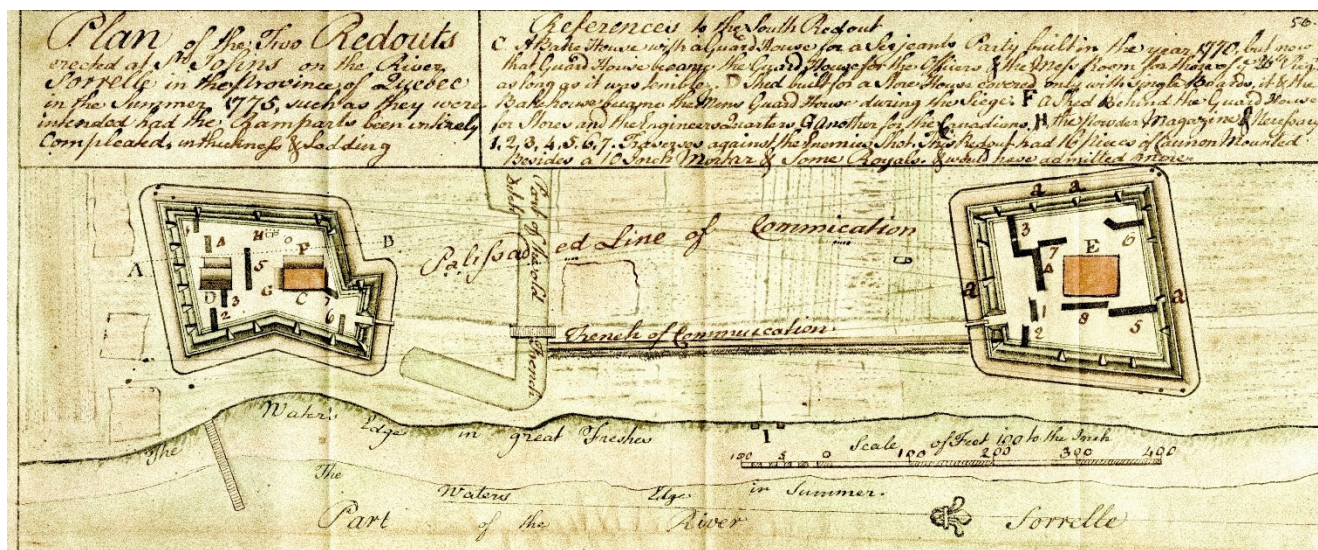 Plan of the Two Redouts
erected at St. Johns on the River
Sorrelle in the Province of Quebec
in the Summer 1775, such as they were
intended had the Ramparts been entirely
Compleated, in thickness & Sodding
References to the South Redout
56
C A Bake House with a Guard House for a Serjeants Party built in the year 1770, but now
that Guard House became the Guard House for the Officers & the Mess Room for those of 26th Regt
as long as it was tenible. D Shed built for a Store House covered only with single Boards, it & the
Bakehouse became the Mens Guard House during the Siege. F a Shed Behind the Guard House
for Stores and the Engineers Quarters G Another for the Canadians, H the Powder Magazine &
1, 2, 3, 4, 5, 6, 7. Traverses against the Enemies Shot. This Redout had 16 Pieces of Cannon Mounted
Besides a 10 Inch Mortar & Some Royals, & would have admitted more.
Part of the old
ditch
French
Palissaded Line of Commication
Trench of Commuication
A
B
1
4
H
F
5
D
3
G
C
7
2
6
a
a
a
a
3
7
E
6
4
1
8
5
2
The Water's Edge in great Freshes
1
Scale of Feet 100 to the Inch
100 5 0 100 200 300 400
The Waters Edge in Summer.
Part of the River Sorrelle